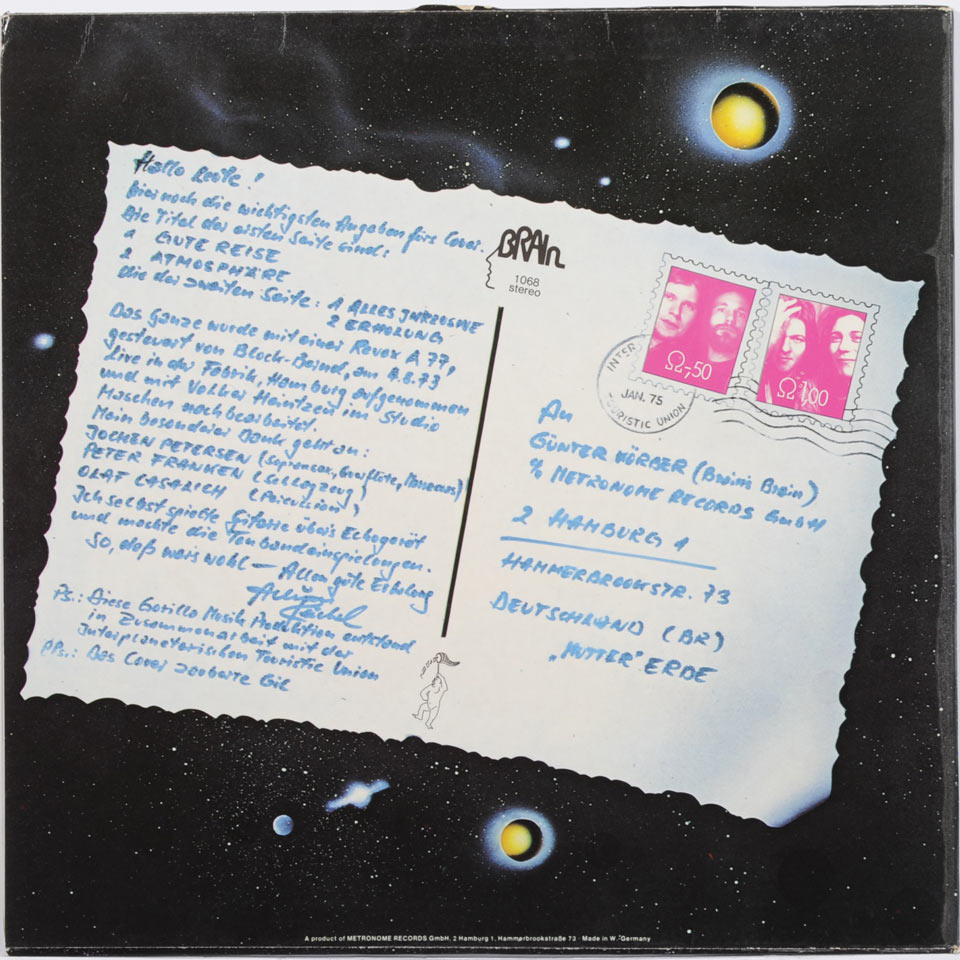 Hallo Leute!
hier noch die wichtigsten Angaben fürs Cover.
Die Titel der ersten Seite sind:
1 GUTE REISE
2 ATMOSPHÄRE
die der zweiten Seite: 1 ALLES INKLUSIVE
2 ERHOLUNG
Das Ganze wurde mit einer Revox A 77,
gesteuert von Block-Bernd, am 4.8.73
live in der Fabrik, Hamburg aufgenommen
und mit Volker Heintzen im Studio
Maschen nachbearbeitet.
Mein besonderer Dank geht an:
JOCHEN PETERSEN (Sopransax, Querflöte,
PETER FRANKEN (Schlagzeug)
OLAF CASALICH (Percussion)
Ich selbst spielte Gitarre übers Echogerät
und machte die Tonbandeinspielungen.
So, daß wars wohl — Allen gute Erholung
Ps.: Diese Gorilla Musik Produktion entstand
in Zusammenarbeit mit der
Interplanetarischen Touristic Union
PPs.: Das Cover zauberte Gil
BRAIN
1068
stereo
Ω-,50
Ω 1,00
INTER
JAN. 75
TOURISTIC UNION
An
GÜNTER KÖRBER (Brain's Brain)
% METRONOME RECORDS GmbH
2 HAMBURG 1
HAMMERBROOKSTR. 73
DEUTSCHLAND (BR)
„MUTTER" ERDE
A product of METRONOME RECORDS GmbH, 2 Hamburg 1, Hammerbrookstraße 73 · Made in W.-Germany